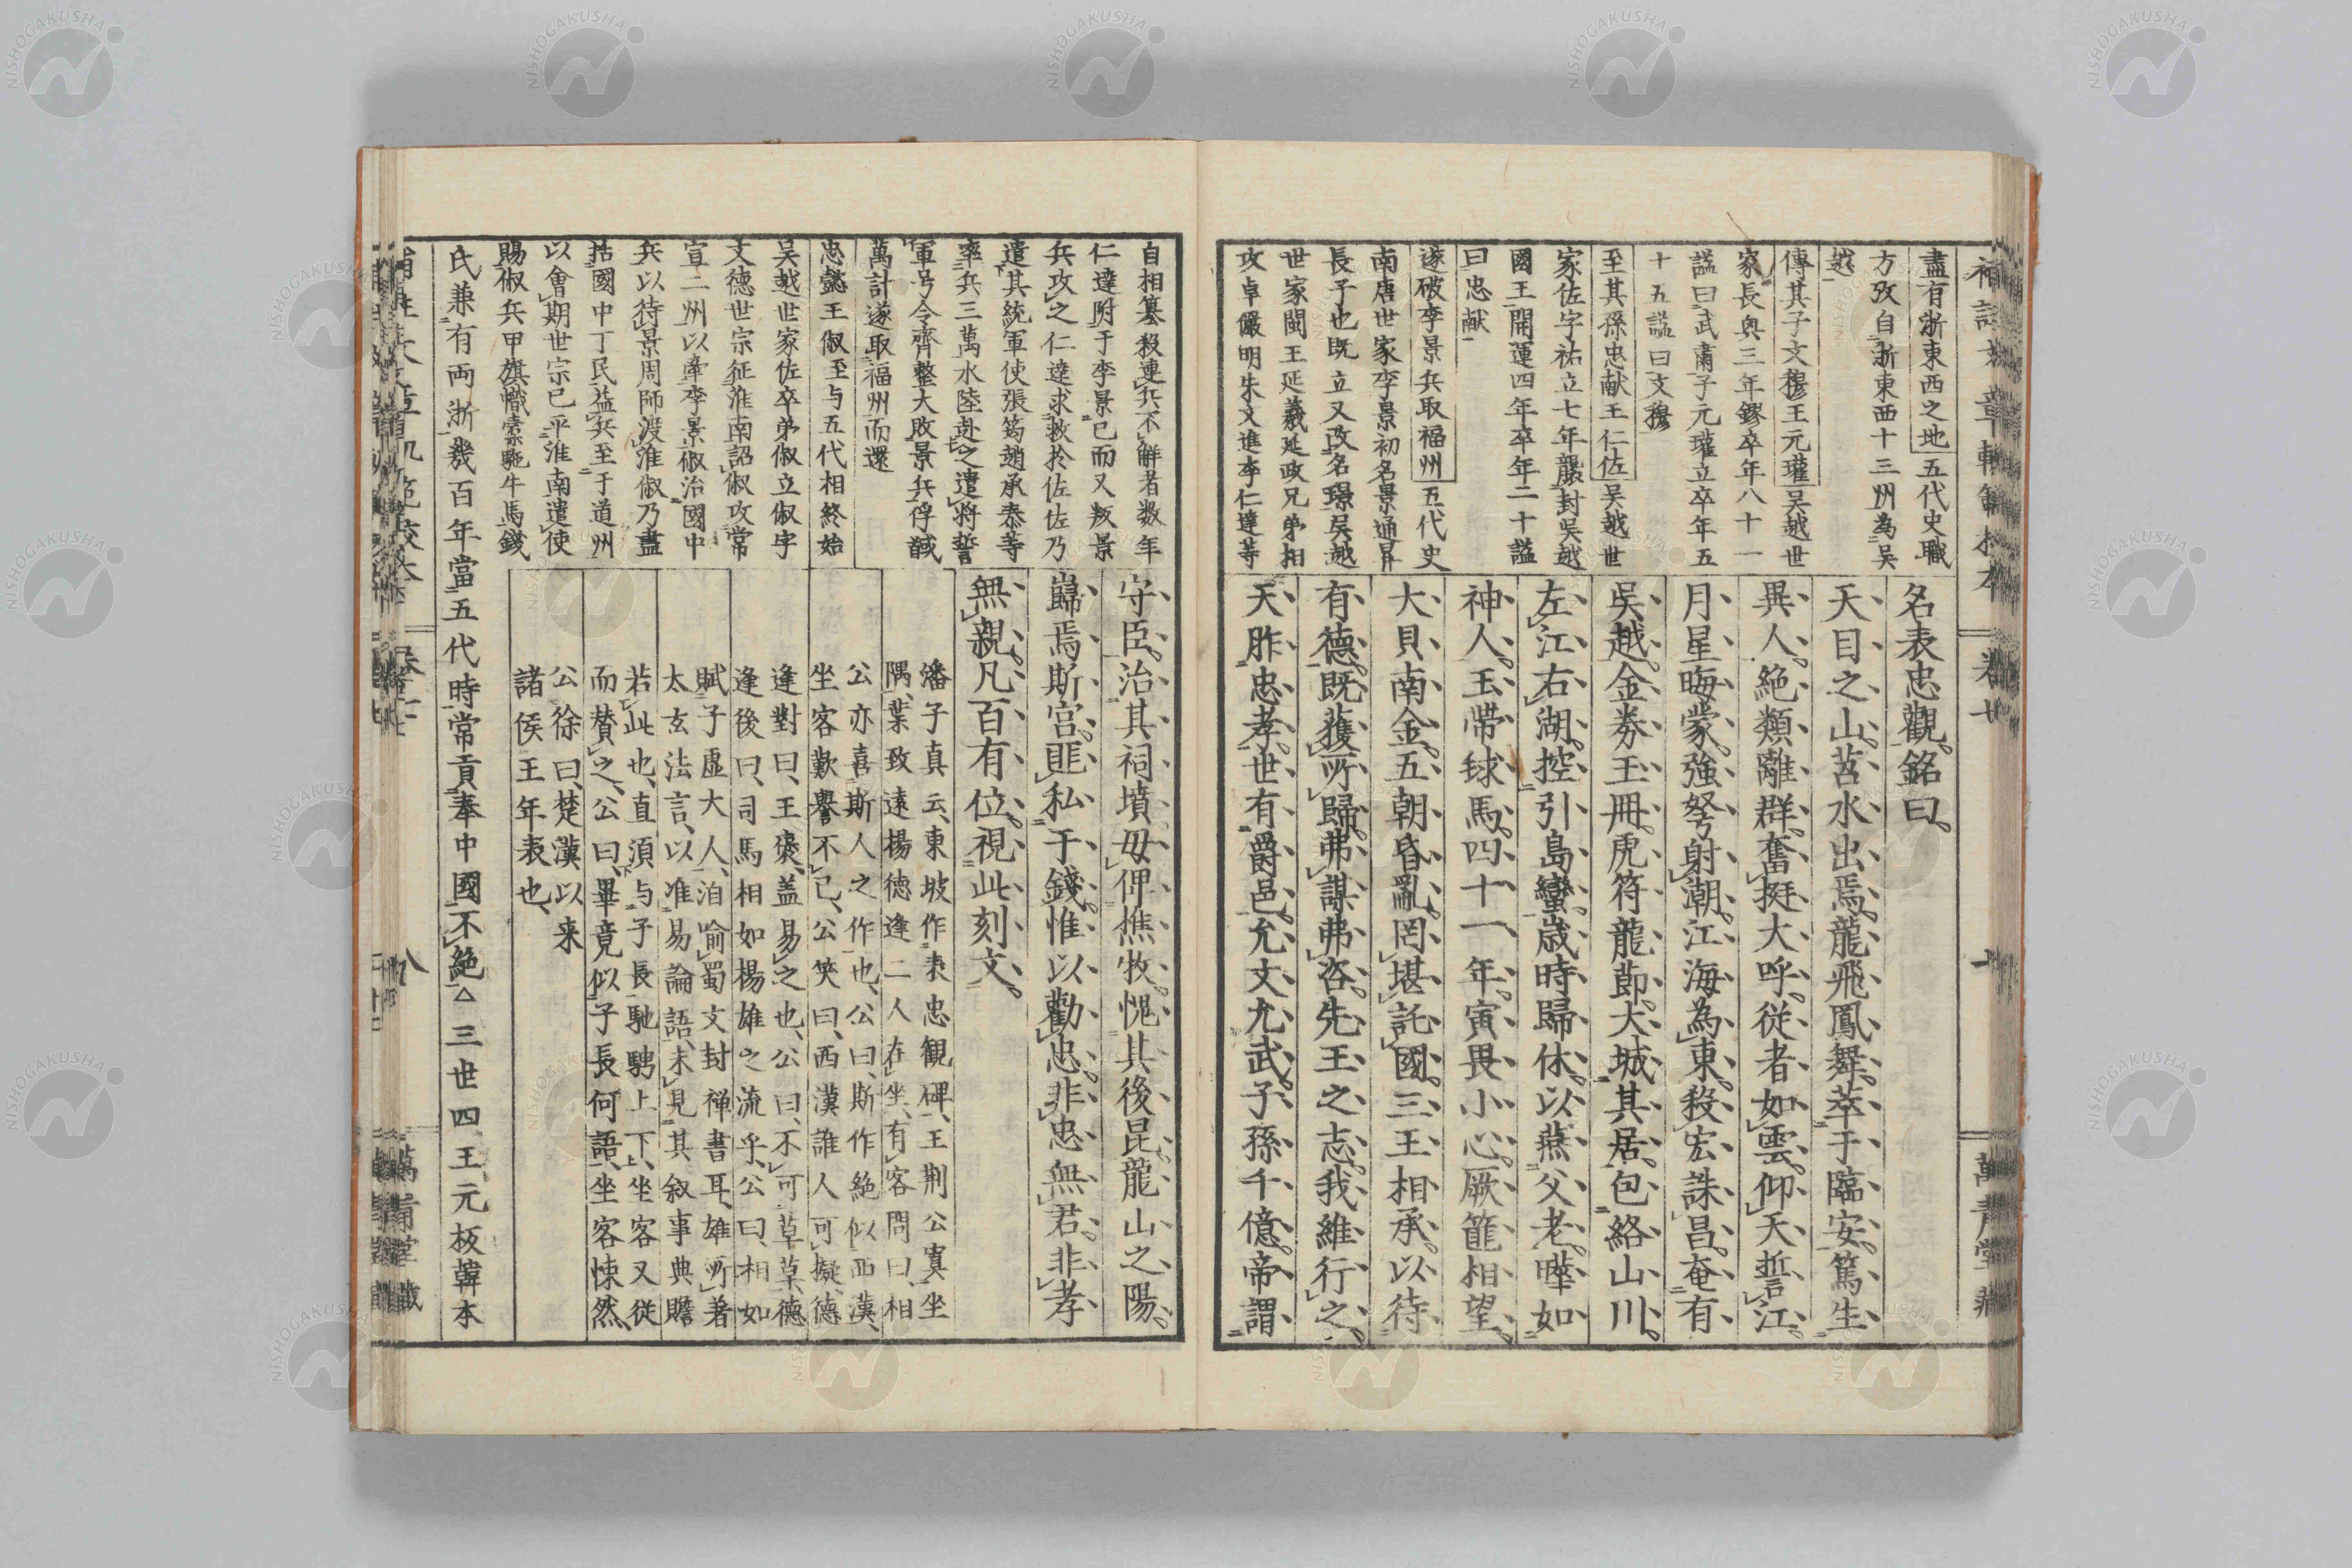 盡有浙東西之地五代史職
方攷自浙東西十三州為吳
越
傳其子文穆王元瓘吳越世
家長興三年鏐卒年八十一
諡曰武肅子元瓘立卒年五
十五諡曰文穆
至其孫忠献王仁佐吳越世
家佐字祐立七年襲封吳越
國王開運四年卒年二十諡
曰忠献
遂破李景兵取福州五代史
南唐世家李景初名景通昇
長子也既立又改名璟吳越
世家閩王延羲延政兄弟相
攻卓儼明朱文進李仁達等
名表忠觀銘曰
天目之山苕水出焉龍飛鳳舞萃于臨安篤生
異人絶類離群奮挺大呼従者如雲仰天誓江
月星晦蒙強弩射潮江海為東殺宏誅昌奄有
吳越金券玉冊虎符龍節大城其居包絡山川
左江右湖控引島蠻歳時歸休以燕父老曄如
神人玉帯毬馬四十一年寅畏小心厥篚相望
大貝南金五朝昏亂罔堪託國三王相承以待
有德既獲所歸弗謀弗咨先王之志我維行之
天胙忠孝世有爵邑允文允武子孫千億帝謂
自相簒殺連兵不解者数年
仁達附于李景已而又叛景
兵攻之仁達求救於佐佐乃
遣其統軍使張筠趙承泰等
率兵三萬水陸赴之遣將誓
軍号令齊整大敗景兵俘馘
萬計遂取福州而還
忠懿王俶至与五代相終始
吳越世家佐卒弟俶立俶字
文德世宗征淮南詔俶攻常
宣二州以牽李景俶治國中
兵以待景周師渡淮俶乃盡
括國中丁民益兵至于道州
以會期世宗已平淮南遣使
賜俶兵甲旗幟槖駞牛馬錢
守臣治其祠墳毋俾樵牧愧其後昆龍山之陽
巋焉斯宮匪私于錢惟以勸忠非忠無君非孝
無親凡百有位視此刻文
潘子真云東坡作表忠観碑王荆公寘坐
隅葉致遠楊德逢二人在坐有客問曰相
公亦喜斯人之作也公曰斯作絶似西漢
坐客歎譽不已公笑曰西漢誰人可擬德
逢對曰王褒盖易之也公曰不可草草德
逢後曰司馬相如楊雄之流乎公曰相如
賦子虛大人洎喻蜀文封禅書耳雄所著
太玄法言以准易論語未見其叙事典贍
若此也直須与子長馳騁上下坐客又従
而賛之公曰畢竟似子長何語坐客悚然
公徐曰楚漢以来
諸侯王年表也
氏兼有両浙幾百年當五代時常貢奉中國不絶△三世四王元板韓本